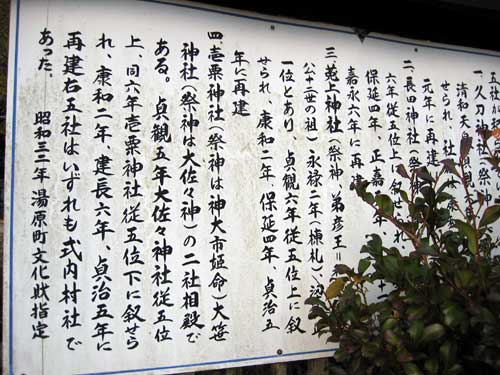 一、久刀神社(祭神
清和天皇
せられ、社
元年に再建
二、長田神社(祭神
六年従五位上に叙せられ
保延四年、正嘉
嘉永六年に再建
三、兎上神社(祭神、弟彦王=
公十二世の祖)永禄二年(棟札)
一位とあり 貞観六年従五位上に叙
せられ、康和二年、保延四年、貞治五
年に再建
四、壱粟神社(祭神は神大市姫命)大笹
神社(祭神は大佐々神)の二社相殿で
ある。貞観五年大佐々神社従五位
上、同六年壱粟神社従五位下に叙せら
れ、康和二年、建長六年、貞治五年に
再建右五社はいずれも式内村社で
あった。
昭和三二年 湯原町文化財指定